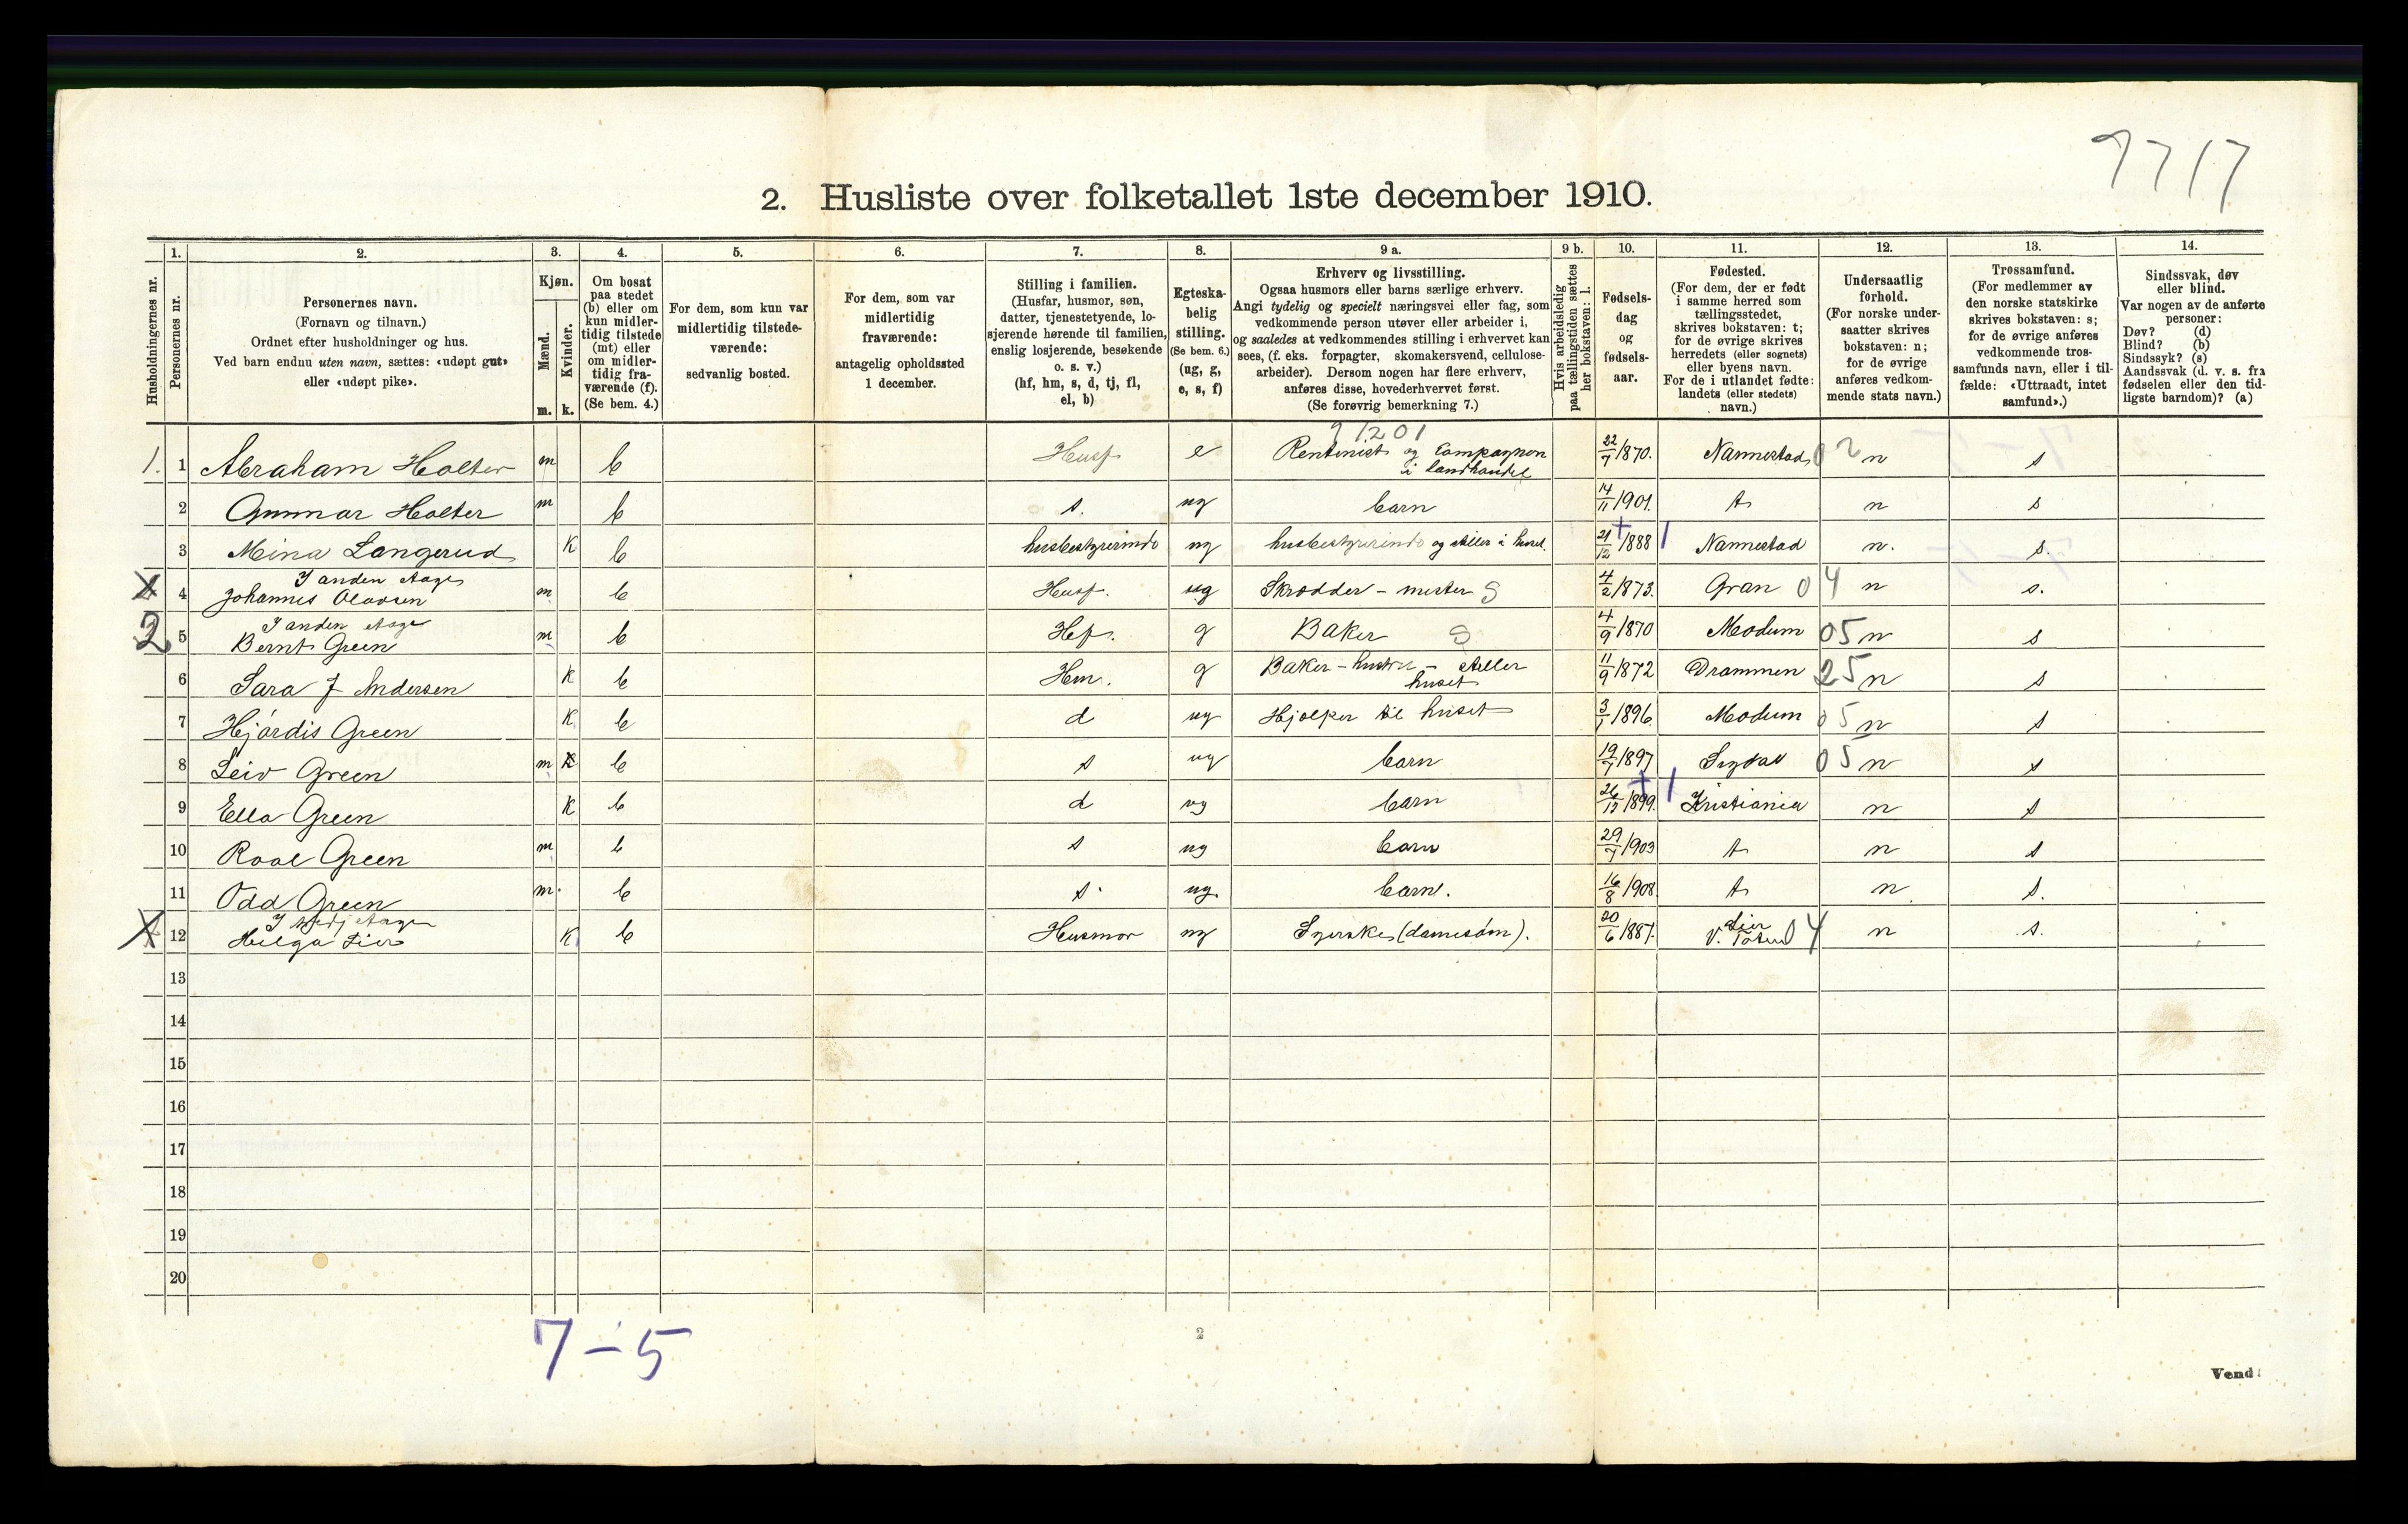 9717
2. Husliste over folketallet 1ste december 1910.
Husholdningernes nr.
1.
Personernes nr.
2.
Personernes navn.
(Fornavn og tilnavn.)
Ordnet efter husholdninger og hus.
Ved barn endnu uten navn, sættes: «udøpt gut»
eller «udøpt pike».
3.
Kjøn.
Mænd.
Kvinder.
m.
k.
4.
Om bosat
paa stedet
(b) eller om
kun midler-
tidig tilstede
(mt) eller
om midler-
tidig fra-
værende (f).
(Se bem. 4.)
5.
For dem, som kun var
midlertidig tilstede-
værende:
sedvanlig bosted.
6.
For dem, som var
midlertidig
fraværende:
antagelig opholdssted
1 december.
7.
Stilling i familien.
(Husfar, husmor, søn,
datter, tjenestetyende, lo-
sjerende hørende til familien,
enslig losjerende, besøkende
o. s. v.)
(hf, hm, s, d, tj, fl,
el, b)
8.
Egteska-
belig
stilling.
(Se bem. 6.)
(ug, g,
e, s, f)
9 a.
Erhverv og livsstilling.
Ogsaa husmors eller barns særlige erhverv.
Angi tydelig og specielt næringsvei eller fag, som
vedkommende person utøver eller arbeider i,
og saaledes at vedkommendes stilling i erhvervet kan
sees, (f. eks. forpagter, skomakersvend, cellulose-
arbeider). Dersom nogen har flere erhverv,
anføres disse, hovederhvervet først.
(Se forøvrig bemerkning 7.)
9 b.
Hvis arbeidsledig
paa tællingstiden sættes
her bokstaven: l.
10.
Fødsels-
dag
og
fødsels-
aar.
11.
Fødested.
(For dem, der er født
i samme herred som
tællingsstedet,
skrives bokstaven: t;
for de øvrige skrives
herredets (eller sognets)
eller byens navn.
For de i utlandet fødte:
landets (eller stedets)
navn.)
12.
Undersaatlig
forhold.
(For norske under-
saatter skrives
bokstaven: n;
for de øvrige
anføres vedkom-
mende stats navn.)
13.
Trossamfund.
(For medlemmer av
den norske statskirke
skrives bokstaven: s;
for de øvrige anføres
vedkommende tros-
samfunds navn, eller i til-
fælde: «Uttraadt, intet
samfund».)
14.
Sindssvak, døv
eller blind.
Var nogen av de anførte
personer:
Døv? (d)
Blind? (b)
Sindssyk? (s)
Aandssvak (d. v. s. fra
fødselen eller den tid-
ligste barndom)? (a)
91201
1. 1 Abraham Holter m b Husf e Rentenist og Compagnon i landhandel 22/7 1870. Nannestad 02 n s
2 Gunnar Holter m b s. ug barn 14/11 1901. t n s
3 Mina Langerud K b husbestyrerinde ug husbestyrerinde og steller i huset. 21/12 1888 + 1 Nannestad n. s.
I anden etage
X 4 Johannes Olavsen m b Husf. ug Skrædder - mester S 4/2 1873. Gran 04 n s.
I anden etage
2 5 Bernt Green m b Hf. g Baker S 4/9 1870 Modum 05 n s
6 Sara J Andersen K b Hm. g Baker - hustru - steller huset 11/9 1872 Drammen 25 n s
7 Hjördis Green K b d ug Hjælper til huset 3/1 1896. Modum 05 n s
8 Leiv Green m b s ug barn 19/7 1897 Sigdal 05 n s
9 Ella Green K b d ug barn 26/12 1899. + 1 Kristiania n s
10 Roal Green m b s ug barn 29/7 1903 t n s
11 Odd Green m. b s. ug. barn. 16/8 1908. t n s.
X 12 Helga Lier K b Husmor ug Syerske (damesøm). 20/6 1887. Lier V. Toten 04 n s.
13
14
15
16
17
18
19
20
7-5
2
Vend!